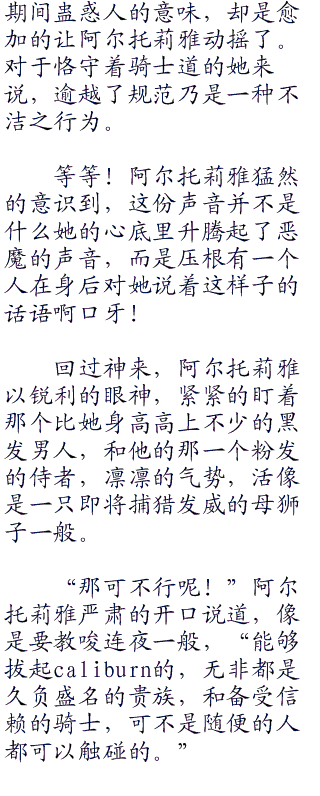 期间蛊惑人的意味，却是愈
加的让阿尔托莉雅动摇了。
对于恪守着骑士道的她来
说，逾越了规范乃是一种不
洁之行为。
等等！阿尔托莉雅猛然
的意识到，这份声音并不是
什么她的心底里升腾起了恶
魔的声音，而是压根有一个
人在身后对她说着这样子的
话语啊口牙！
回过神来，阿尔托莉雅
以锐利的眼神，紧紧的盯着
那个比她身高高上不少的黑
发男人，和他的那一个粉发
的侍者，凛凛的气势，活像
是一只即将捕猎发威的母狮
子一般。
“那可不行呢！”阿尔
托莉雅严肃的开口说道，像
是要教唆连夜一般，“能够
拔起caliburn的，无非都是
久负盛名的贵族，和备受信
赖的骑士，可不是随便的人
都可以触碰的。”